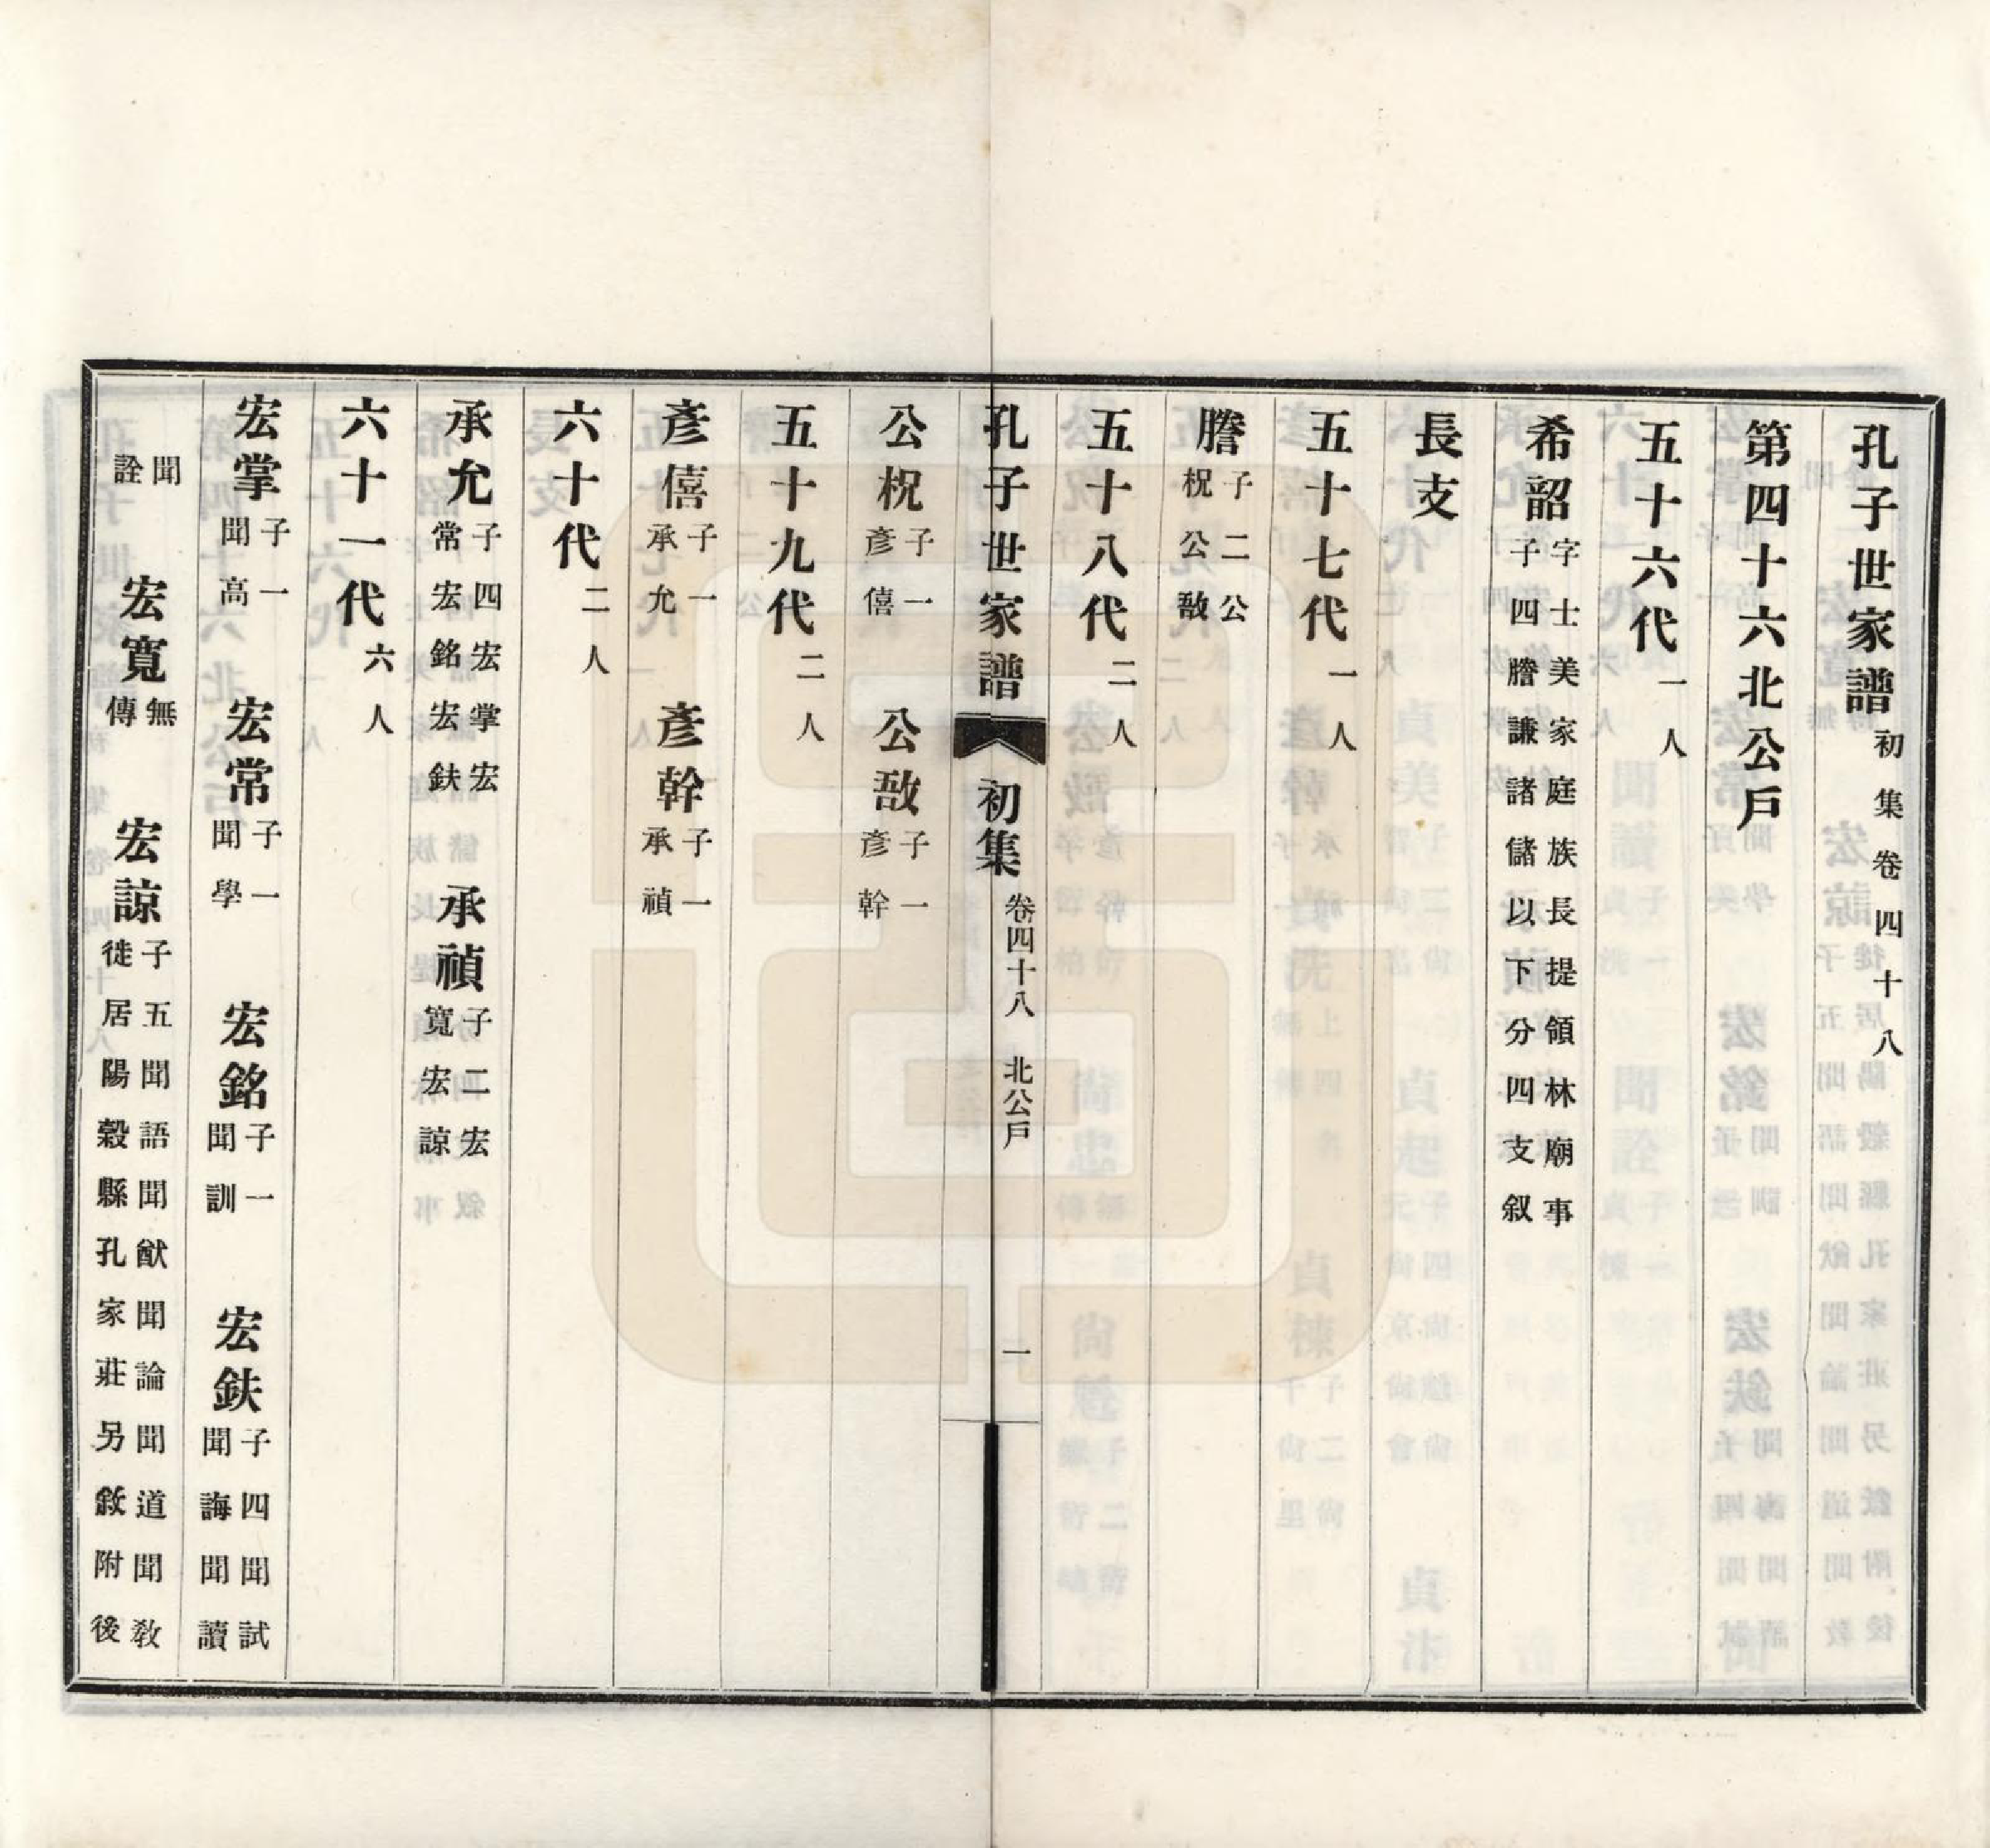 孔子世家譜 初集卷四十八
第四十六北公戶
五十六代 一人
希韶 字士美家庭族長提領林廟事子四謄謙諸儲以下分四支叙
長支
五十七代 一人
謄 子二公祝公敔
五十八代 二人
孔子世家譜 初集 卷四十八 北公戶 一
公祝 子一彥僖 公敔 子一彥幹
五十九代 二人
彥僖 子一承允 彥幹 子一承禎
六十代 二人
承允 子四宏掌宏常宏銘宏鈇 承禎 子二宏寬宏諒
六十一代 六人
宏掌 子一聞高 宏常 子一聞學 宏銘 子一聞訓 宏鈇 子四聞試聞誨聞讀
聞詮 宏寬 無傳 宏諒 子五聞語聞猷聞論聞道聞教徙居陽穀縣孔家莊另敘附後